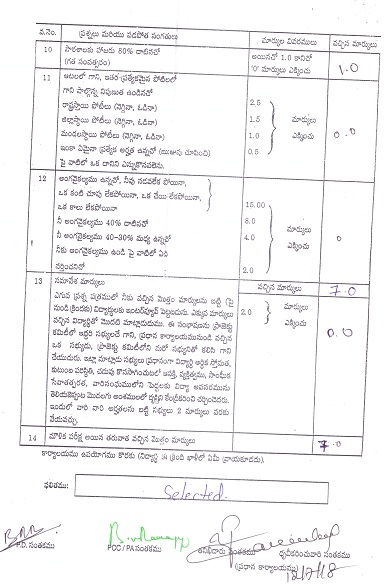 వ.నెం. ప్రశ్నలు మరియు పదకోశ సంగతులు మార్కుల వివరములు వచ్చిన మార్కులు
10 పాఠశాలకు హాజరు 80% దాటినచో అయినచో 1.0 కానిచో 1.0
(గత సంవత్సరం) "0" మార్కులు ఎక్కించు
11 ఆటలలో గాని, ఇతర ప్రత్యేకమైన పోటీలలో
గాని పాల్గొన్న నిపుణత ఉండినచో
రాష్ట్రస్థాయి పోటీలు (నెగ్గినా, ఓడినా) 2.5
జిల్లాస్థాయి పోటీలు (నెగ్గినా, ఓడినా) 1.5 మార్కులు
మండలస్థాయి పోటీలు (నెగ్గినా, ఓడినా) 1.0 ఎక్కించు 0.0
ఇంకా ఏమైనా ప్రత్యేక అర్హత ఉన్నచో (ఋజువు చూపించి) 0.5
పై వాటిలో ఒక దానిని ఎన్నుకొనవలెను.
12 అంగవైకల్యము ఉన్నచో, నీవు నడవలేక పోయినా,
ఒక కంటి చూపు లేకపోయినా, ఒక చేయి లేకపోయినా,
ఒక కాలు లేకపోయినా 15.00
నీ అంగవైకల్యము 40% దాటినచో 8.0 మార్కులు
నీ అంగవైకల్యము 40-30% మధ్య ఉన్నచో 4.0 ఎక్కించు 0
నీకు అంగవైకల్యము ఉండి పై వాటిలో ఏది
వర్తించనిచో 2.0
13 సమానేక మార్కులు వచ్చిన మార్కులు 7.0
ఎగువ ప్రశ్న పత్రములో నీకు వచ్చిన మొత్తం మార్కులను బట్టి (పై 2.0 మార్కులు
నుండి క్రిందకు) విద్యార్థులకు ఇంటర్వ్యూవ్ పెట్టబడును. ఎక్కువ మార్కులు ఎక్కించు 0.0
వచ్చిన విద్యార్థితో మొదటి మాట్లాడుదుము. ఈ సంభాషణను ప్రాజెక్టు
కమిటీలో ఇద్దరి సభ్యులచే గాని, ప్రధాన కార్యాలయమునుండి వచ్చిన
ఒక సభ్యుడు, ప్రాజెక్టు కమిటీలోని మరో సభ్యునితో కలిసి గాని
చేయుదురు. ఇట్లా మాట్లాడు సభ్యులు ప్రధానంగా విద్యార్థి ఆర్థిక స్తోమత,
కుటుంబ పరిస్థితి, చదువు కొనసాగించుటలో ఆసక్తి, వ్యక్తిత్వము, సాంఘిక
సేవాతత్పరత, వారిసంఘములోని పెద్దలకు విద్యా అవసరమును
తెలియజెప్పుట మొదలగు అంశములలో దృష్టిని కేంద్రీకరించి చర్చించెదరు.
ఇందులో వారి వారి అర్హతలను బట్టి సభ్యులు 2 మార్కులు వరకు
వేయవచ్చు.
14 మౌఖిక పరీక్ష అయిన తరువాత వచ్చిన మొత్తం మార్కులు 7.0
కార్యాలయము ఉపయోగము కొరకు (విద్యార్థి ఈ క్రింది ఖాళీలో ఏమీ వ్రాయకూడదు).
ఫలితము: Selected.
P.D. సంతకము PCC / PA సంతకము తనిఖీదారు సంతకము ధృవీకరించువారి సంతకము
(ప్రధాన కార్యాలయము)
12/7/18